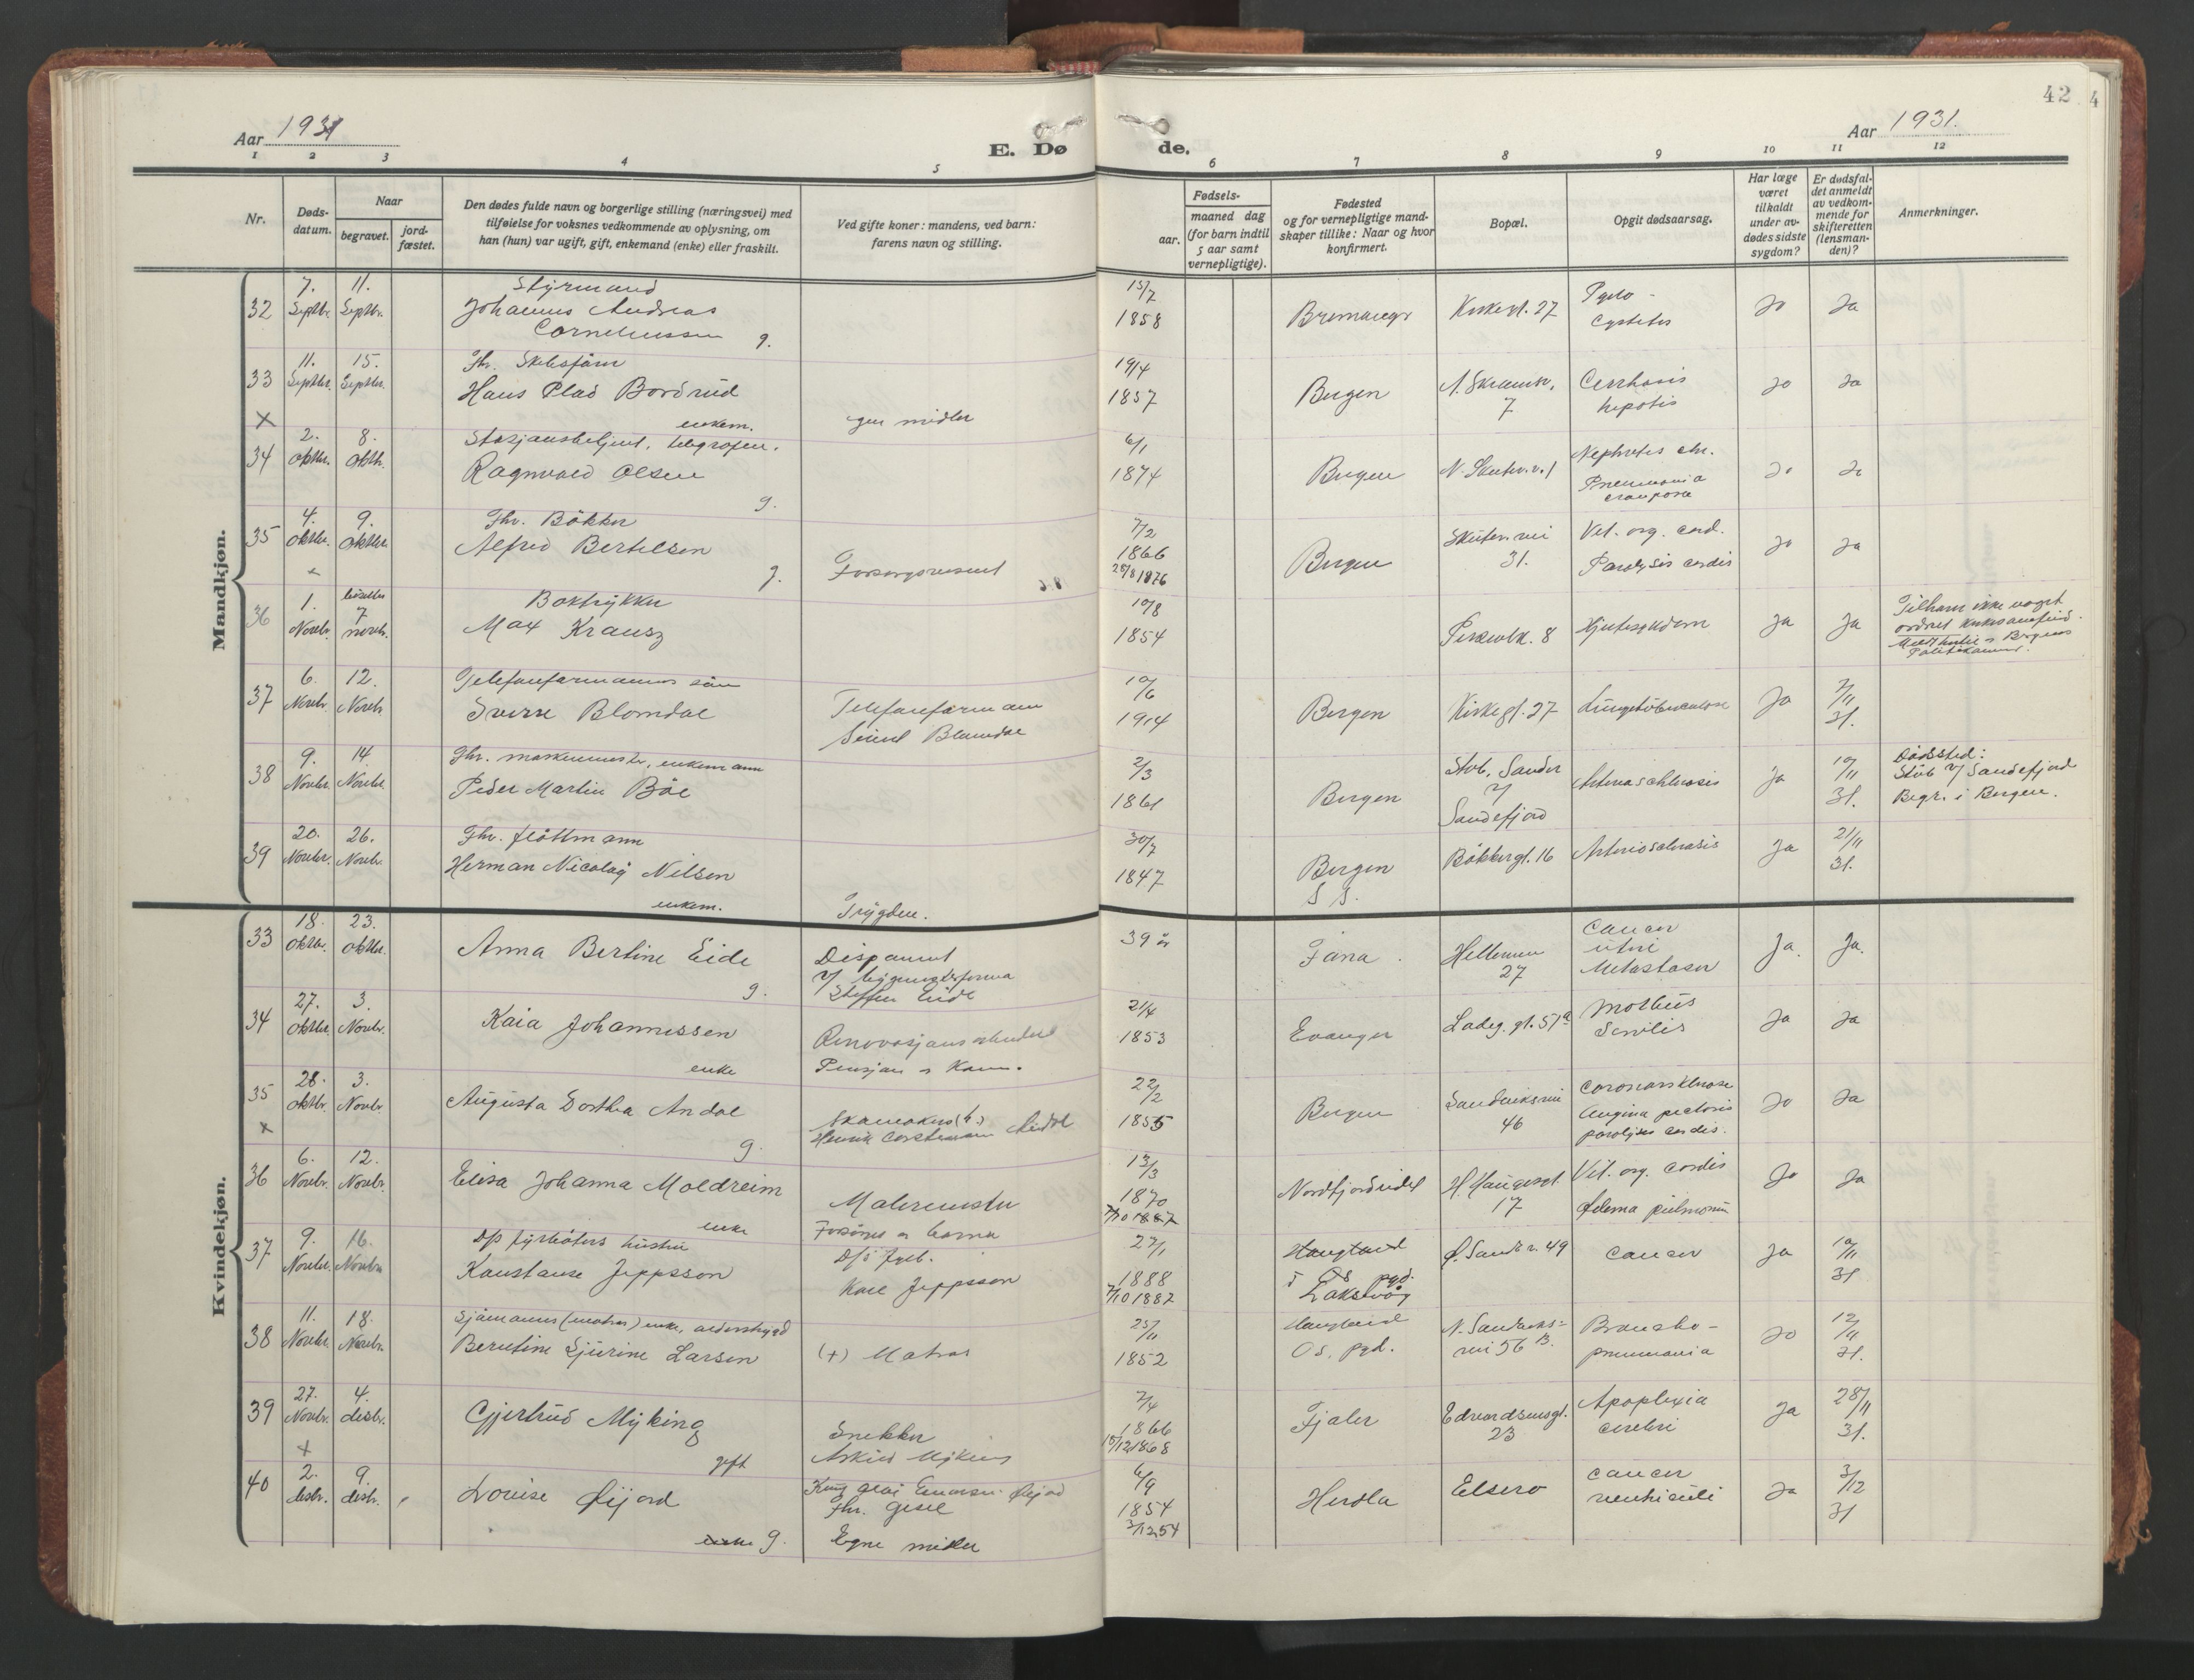 42
4
Aar 1931
E. Dø
de.
Aar 1931.
1 2 3 4 5 6 7 8 9 10 11 12
Nr.
Døds-
datum.
Naar
begravet.
jord-
fæstet.
Den dødes fulde navn og borgerlige stilling (næringsvei) med
tilføielse for voksnes vedkommende av oplysning, om
han (hun) var ugift, gift, enkemand (enke) eller fraskilt.
Ved gifte koner: mandens, ved barn:
farens navn og stilling.
aar.
Fødsels-
maaned dag
(for barn indtil
5 aar samt
vernepligtige).
Fødested
og for vernepligtige mand-
skaper tillike: Naar og hvor
konfirmert.
Bopæl.
Opgit dødsaarsag.
Har læge
været
tilkaldt
under av-
dødes sidste
sygdom?
Er dødsfal-
det anmeldt
av vedkom-
mende for
skifteretten
(lensman-
den)?
Anmerkninger.
Mandkjøn.
32
7. Septbr.
11. Septbr.
Styrmand
Johannes Andreas
Corneliussen g.
15/7
1858
Bremanger
Kirkegt. 27
Pyelo-
Cystitis
Ja
Ja
33
11. Septbr.
15. Septbr.
Hans Blad Bordrud
enkem.
19/4
1857
Bergen
7
Cirrhosis
hepatis
Ja
Ja
X
34
2. oktbr.
8. oktb.
Ragnvald Olsen
g.
6/1
1874
Bergen
Nephritis chr.
Pneumonia
crouposa
Ja
Ja
35
4. oktbr.
9. oktbr.
Fhv. Bøkker
Alfred Bertelsen
g.
7/2
1866
25/8 1876
Bergen
31.
Vit. org. cord.
Paralysis cordis
Ja
Ja
36
1. Novbr.
7 novb.
Boktrykker
Max Krausz
10/8
1854
8
Hjertesykdom
Ja
Ja
37
6. Novbr.
12. Novb.
Telefonformanns søn
Sverre Blomdal
Telefonformann
Blomdal
10/6
1914
Bergen
Kirkegt. 27
Lungetuberkulose
Ja
7/11
31.
38
9. Novbr.
14. Novbr.
Fhv. maskinmester, enkemann
Peder Martin Bøe
2/3
1861
Bergen
Stub, Sandar
v/
Sandefjord
Ja
10/11
31.
Dødssted:
Stub v/ Sandefjord
Begr. i Bergen.
39
20. Novbr.
26. Novb.
Fhv. fløttmann
Herman Nicolay Nilsen
enkem.
Trygden.
30/7
1847
Bergen
Bøkkergt. 16
Arteriosclerosis
Ja
21/11
31.
Kvindekjøn.
33
18. oktbr.
23. oktbr.
Anna Bertine Eide
g.
Steffen Eide
39 år
Fana.
27
Cancer
uteri
Metastaser
Ja.
Ja.
34
27. oktbr.
3. Novbr.
Kaia Johannessen
enke
Renovasjonsarbeider
Pensjon
21/4
1853
Evanger
Ladeg. gt. 51a
Morbus
Senilis
Ja
Ja
35
28. oktbr.
3. Novbr.
Augusta Dorthea Andal
g.
Skomaker
Andal
22/2
1855
Bergen
Sandviksvei
46
Coronarsklerose
Angina pectoris
paralysis cordis.
Ja
Ja
X
36
6. Novbr.
12. Novbr.
Elisa Johanna Moldreim
enke
Malermester
13/3
1870
Nordfjordeidet
H. Haugesgt.
17
Vit. org. cordis
Ødema pulmonum
Ja
Ja
37
9. Novbr.
16. Novbr.
D/s fyrbøters hustru
Konstanse Jeppsson
D/s fyrb.
Karl Jeppsson
27/1
1888
7/10 1887
Haugland
i Os pgd.
Laksevåg
Ø. Sandv. v. 49
Cancer
Ja
10/11
31
38
11. Novbr.
18. Novbr.
Sjømanns (matros) enke, alderstrygd
Berntine Sjurine Larsen
(+) Matros
25/11
1852
Haugland
Os. pgd.
N. Sandviks-
vei 56 B.
Broncho-
pneumonia
Ja
12/11
31.
39
27. Novbr.
4. desbr.
Gjertrud Myking
gift
Snekker
Askild Myking
7/4
1866
15/12 1868
Fjaler
Edvardsensgt.
23
Apoplexia
cerebri
Ja
28/11
31.
+
40
2. desbr.
9. desbr.
Lovise Øijord
enke g.
Egne midler
6/9
1854
3/12 54
Herdla
Elsero
cancer
ventriculi
Ja
3/12
31